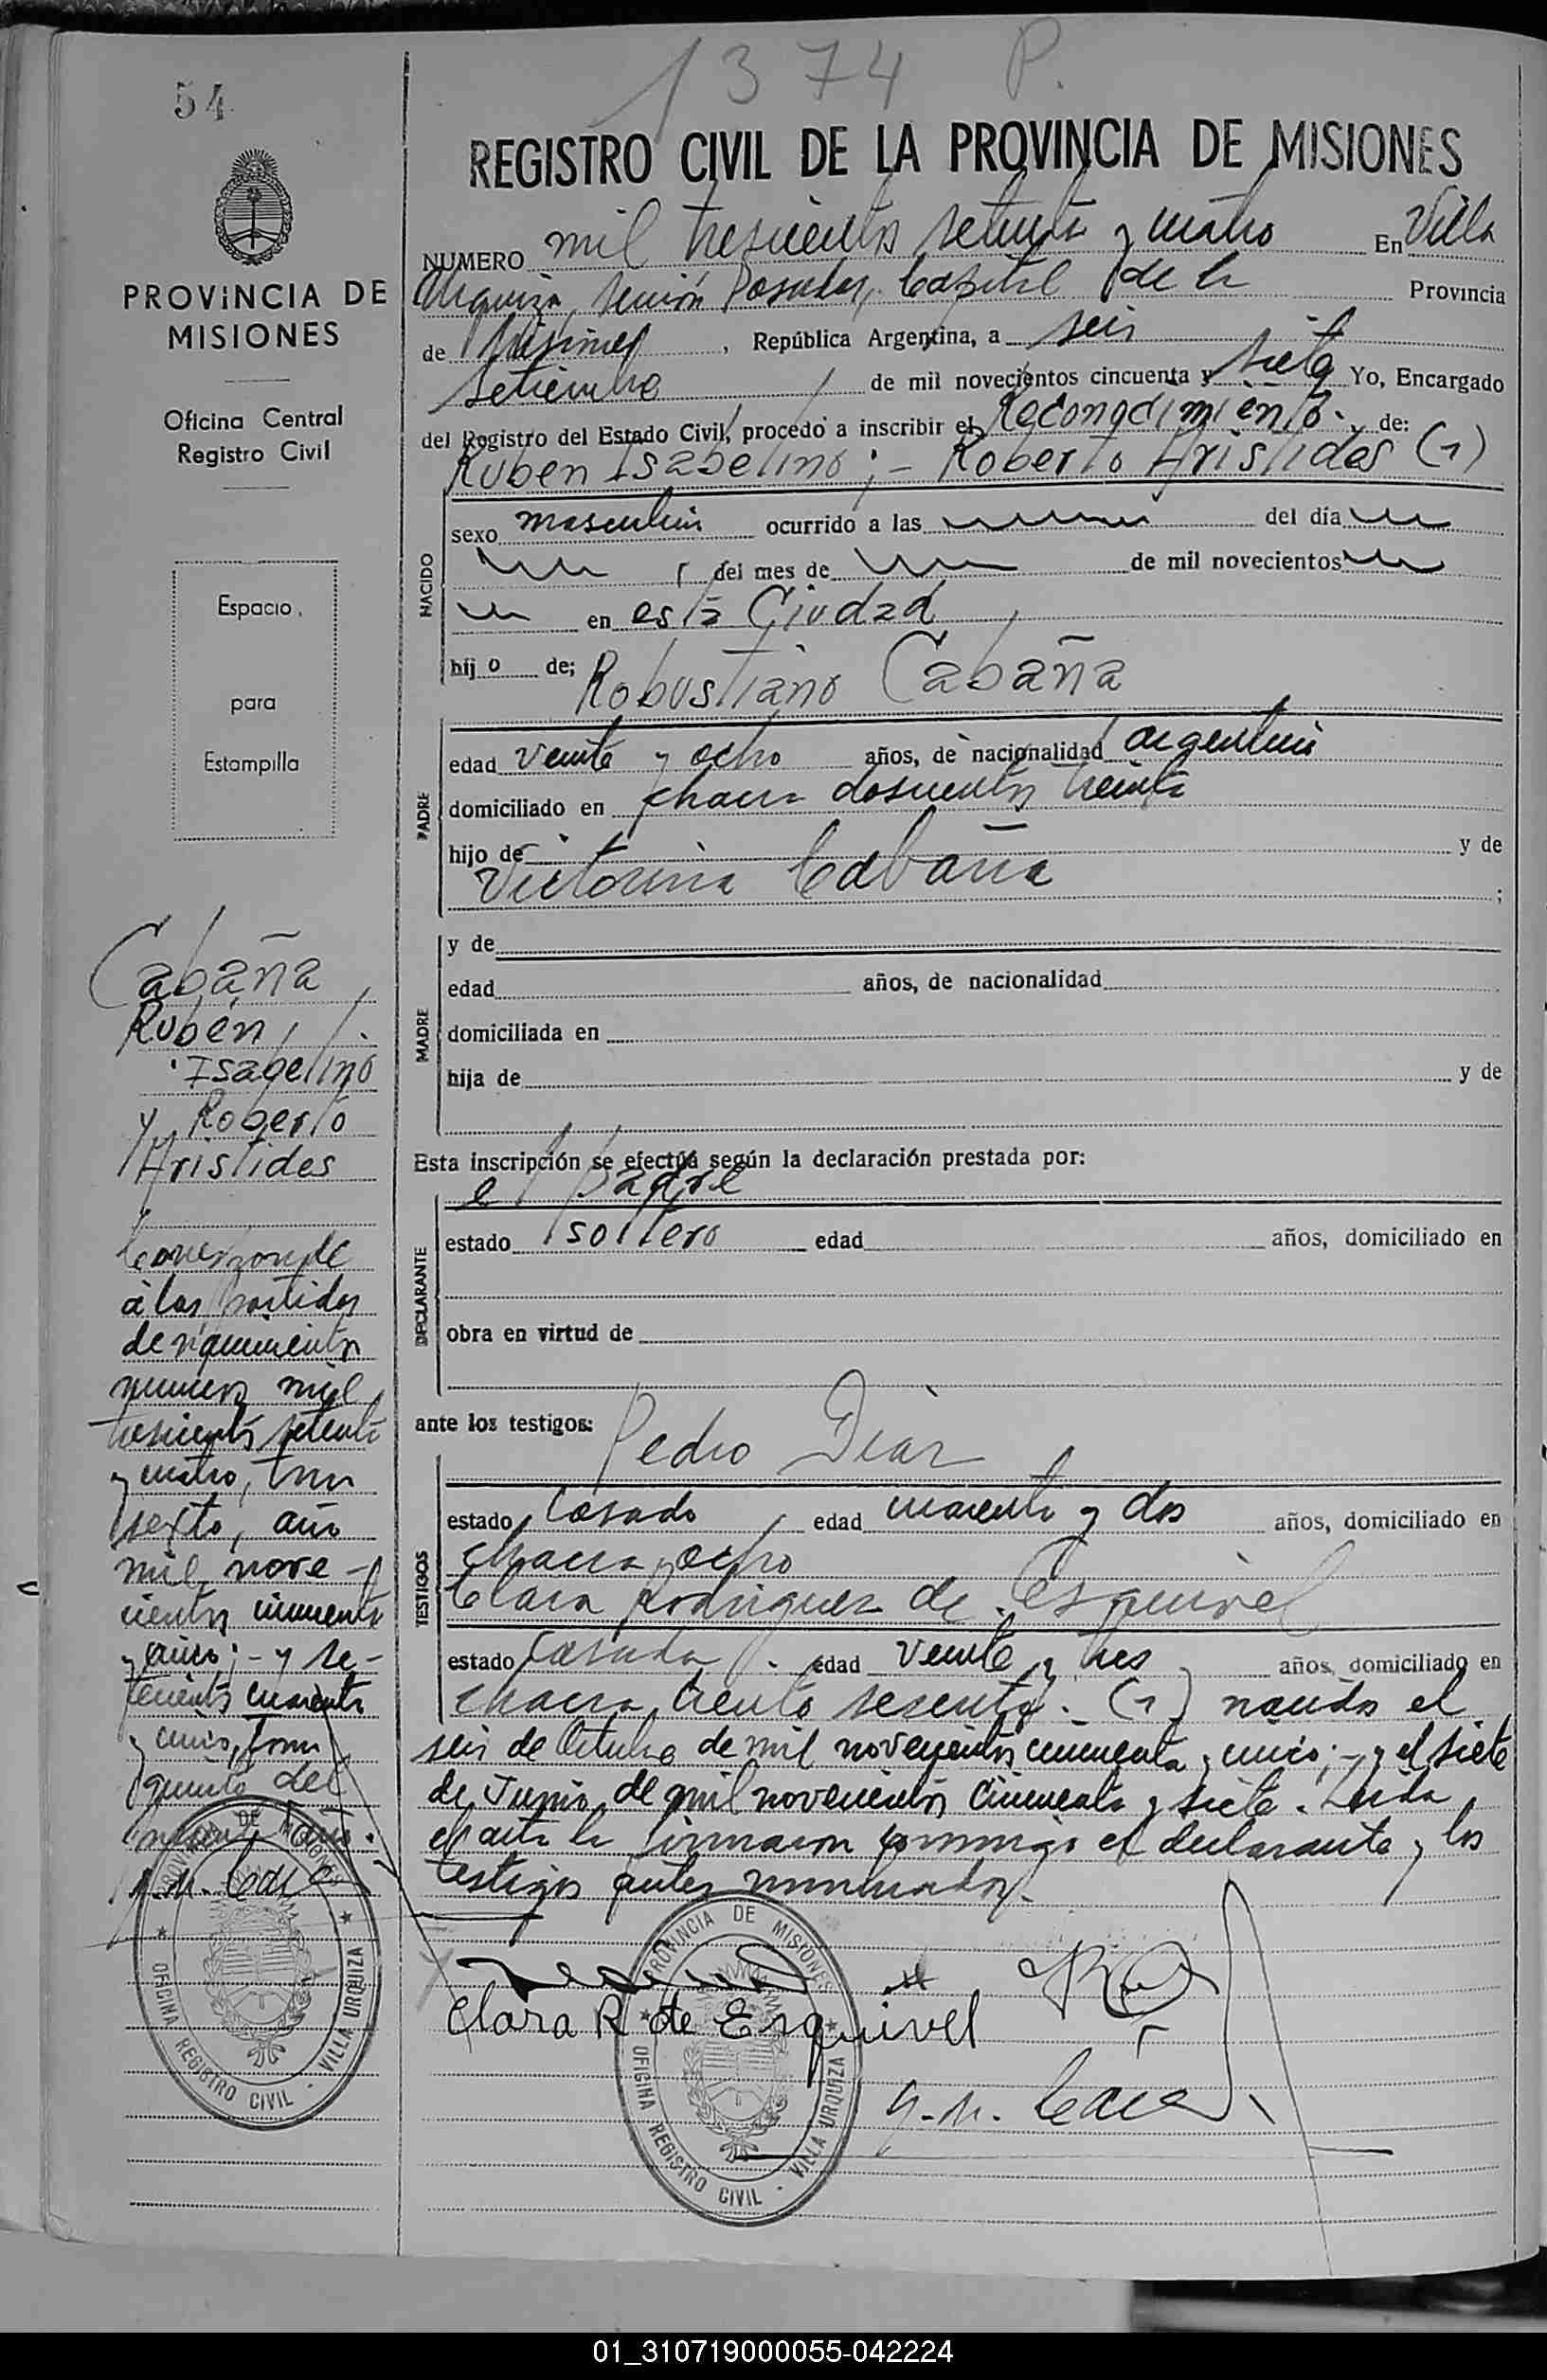 1374 P.
54
REGISTRO CIVIL DE LA PROVINCIA DE MISIONES
NUMERO mil trescientos setenta y cuatro En Villa
Urquiza, sección Posadas, Capital de la Provincia
de Misiones, República Argentina, a seis
setiembre de mil novecientos cincuenta y siete Yo, Encargado
del Registro del Estado Civil, procedo a inscribir el Reconocimiento. de:
Rubén Isabelino; - Roberto Arístides (1)
NACIDO
sexo masculino ocurrido a las del día
del mes de de mil novecientos
en esta Ciudad
hijo de; Robustiano Cabaña
PADRE
edad veinte y ocho años, de nacionalidad argentina
domiciliado en chacra doscientos treinta
hijo de y de
Victorina Cabaña ;
MADRE
y de
edad años, de nacionalidad
domiciliada en
hija de y de
Esta inscripción se efectúa según la declaración prestada por:
el padre
DECLARANTE
estado soltero edad años, domiciliado en
obra en virtud de
ante los testigos: Pedro Diaz
TESTIGOS
estado Casado edad cuarenta y dos años, domiciliado en
chacra ocho
Clara Rodriguez de Esquivel
estado Casada edad veinte y tres años, domiciliado en
chacra ciento sesenta. (1) nacidos el
seis de Octubre de mil novecientos cincuenta y cinco; - y el siete
de Junio de mil novecientos cincuenta y siete. Leida
el acta la firmaron conmigo el declarante y los
testigos antes nombrados.
Clara R de Esquivel
PROVINCIA DE MISIONES
OFICINA REGISTRO CIVIL - VILLA URQUIZA
PROVINCIA DE
MISIONES
Oficina Central
Registro Civil
Espacio
para
Estampilla
Cabaña
Rubén
Isabelino
y Roberto
Arístides
Corresponde
a las partidas
de nacimientos
número mil
trescientos setenta
y cuatro, tomo
sexto, año
mil nove-
cientos cincuenta
y cinco; - y se-
tecientos cuarenta
y cinco, tomo
quinto del
PROVINCIA DE MISIONES
OFICINA REGISTRO CIVIL - VILLA URQUIZA
01_310719000055-042224